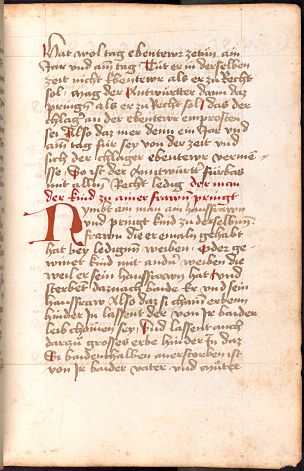 hat wol tag ebentewr zetůn ain
Jar und ain tag Tůt er in derselben
zeit nicht Ebentewr als er zu Recht
sol mag der Antwůrtter dann daz
pringen als er zu Recht sol daz der
chlag an der ebentewr emprosten
sey Also daz mer denn ein Jar und
ain tag für sey von der zeit und
sich der chlager ebentewr verme
sse So ist der Antwůrtter fürbas
mit allem Recht ledig der man
der kind zu ainer frawen pringt
Nymbt ain man ain hausfrawn
und pringt kind zu derselbenn
frawn die er emaln gehabt
hat bey ledigenn weiben Oder ge
winnet kind mit andern weiben die
weil er sein hausfrawn hat Und
sterbet darnach baide er und sein
hausfraw Also daz si chain erbenn
hinder In lassent der von Ir baider
leib chomen sey Und lassent auch
darzu grosses erbe hinder In daz
In baidenthalben anerstorben ist
von Ir baider vater und mueter